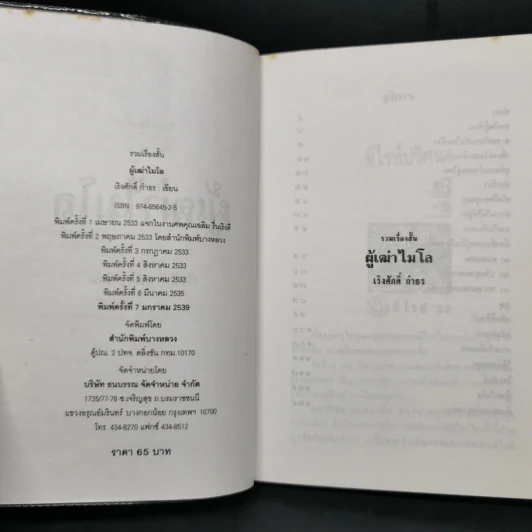 รวมเรื่องสั้น
ผู้เฒ่าไมโล
เริงศักดิ์ กำธร : เขียน
ISBN 974-85645-2-5
พิมพ์ครั้งที่ 1 เมษายน 2533 แจกในงานศพคุณเฉลิม รื่นเริงดี
พิมพ์ครั้งที่ 2 พฤษภาคม 2533 โดยสำนักพิมพ์บางหลวง
พิมพ์ครั้งที่ 3 กรกฎาคม 2533
พิมพ์ครั้งที่ 4 สิงหาคม 2533
พิมพ์ครั้งที่ 5 สิงหาคม 2533
พิมพ์ครั้งที่ 6 มีนาคม 2535
พิมพ์ครั้งที่ 7 มกราคม 2539
จัดพิมพ์โดย
สำนักพิมพ์บางหลวง
ตู้ปณ. 2 ปทจ. ตลิ่งชัน กทม.10170
จัดจำหน่ายโดย
บริษัท ธนบรรณ จัดจำหน่าย จำกัด
1735/77-78 ซ.เจริญสุข ถ.บรมราชชนนี
แขวงอรุณอัมรินทร์ บางกอกน้อย กรุงเทพฯ 10700
โทร. 434-8270 แฟกซ์ 434-8512
ราคา 65 บาท
รวมเรื่องสั้น
ผู้เฒ่าไมโล
เริงศักดิ์ กำธร